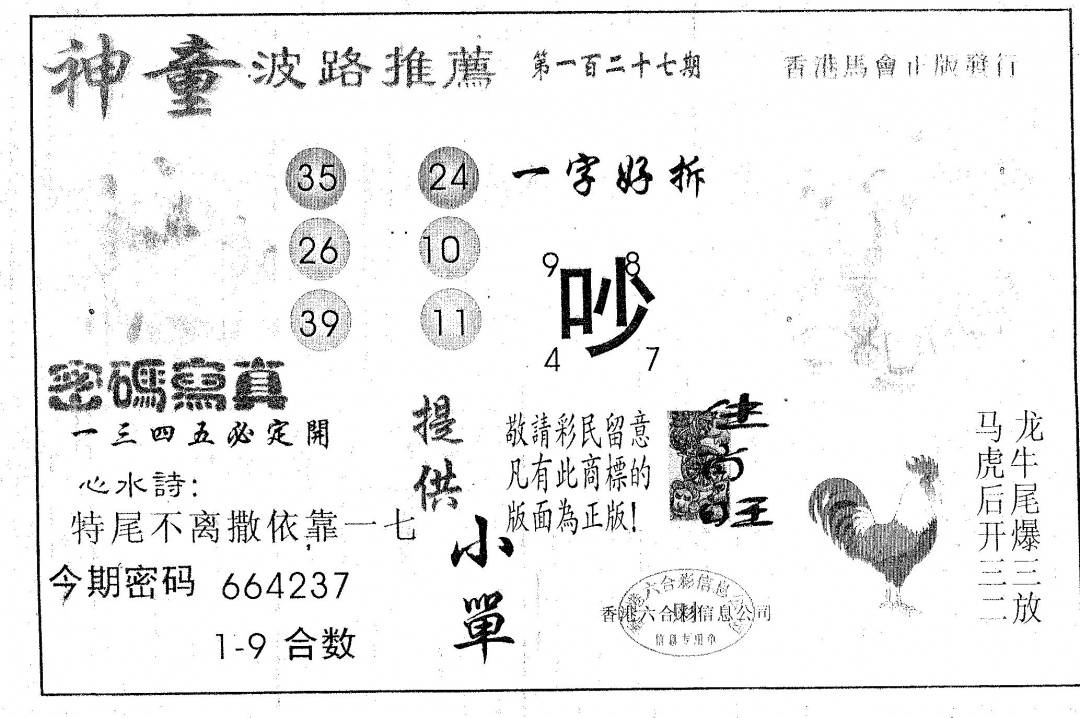 神童波路推薦 第一百二十七期 香港馬會正版發行
35 24 一字好拆
26 10
39 11
9 8
吵
4 7
密碼寫真
一三四五必定開
心水詩：
特尾不离撒依靠一七
今期密码 664237
1-9 合数
提供
小單
敬請彩民留意
凡有此商標的
版面為正版!
龙牛尾爆三放
马虎后开三二
香港六合彩信息公司